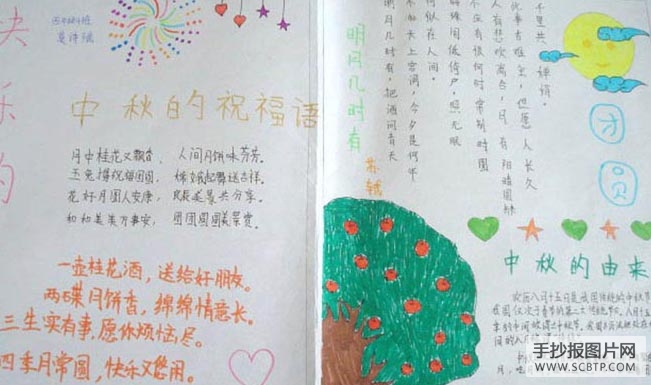 快乐的
中秋的祝福语
月中桂花又飘香，人间月饼味芬芳。
玉兔捣祝福团圆，嫦娥起舞送吉祥。
花好月圆人安康，共分享。
和和美美万事安，团团圆圆美景赏。
一壶桂花酒，送给好朋友。
两碟月饼香，绵绵情意长。
三生实有事，愿你烦恼尽。
四季月常圆，快乐又悠闲。
明月几时有
苏轼
明月几时有，把酒问青天
不知天上宫阙，今夕是何年
何似在人间。
转朱阁低绮户，照无眠
不应有恨何时常别时圆
人有悲欢离合，月有阴晴圆缺
此事古难全，但愿人长久
千里共婵娟。
团圆
中秋的由来
农历八月十五日是我国传统的中秋节
手抄报图片网
WWW.SCBTP.COM